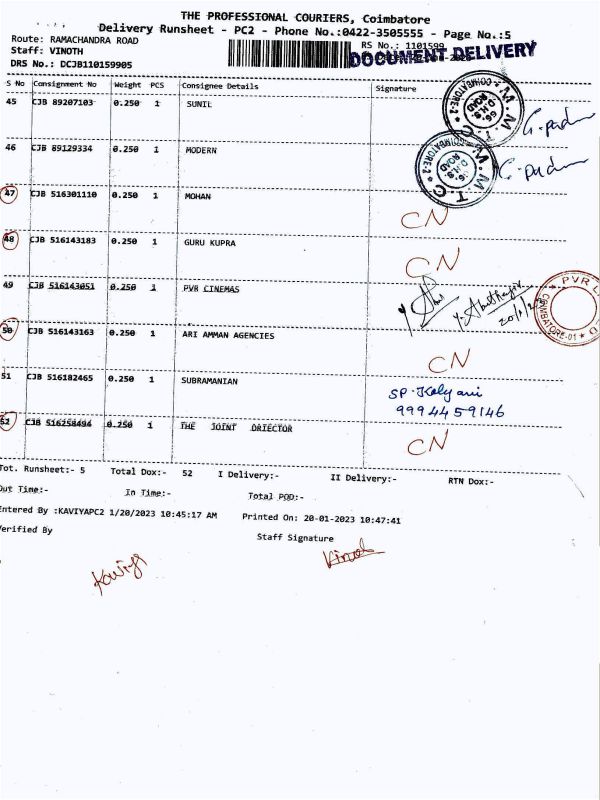 THE PROFESSIONAL COURIERS, Coimbatore
Delivery Runsheet - PC2 - Phone No.:0422-3505555 - Page No.:5
Route: RAMACHANDRA ROAD
RS No.: 1101599
Staff: VINOTH
DOCUMENT DELIVERY
DRS No.: DCJB110159905
S No Consignment No Weight PCS Consignee Details Signature
45 CJB 89207103 0.250 1 SUNIL
46 CJB 89129334 0.250 1 MODERN
47 CJB 516301110 0.250 1 MOHAN CN
48 CJB 516143183 0.250 1 GURU KUPRA CN
49 CJB 516143051 0.250 1 PVR CINEMAS
50 CJB 516143163 0.250 1 ARI AMMAN AGENCIES CN
51 CJB 516182465 0.250 1 SUBRAMANIAN SP. Kalyani
9994459146
52 CJB 516258494 0.250 1 THE JOINT DRIECTOR CN
Tot. Runsheet:- 5 Total Dox:- 52 I Delivery:- II Delivery:- RTN Dox:-
Out Time:- In Time:- Total POD:-
Entered By :KAVIYAPC2 1/20/2023 10:45:17 AM Printed On: 20-01-2023 10:47:41
Verified By Staff Signature
Kaviya Vinoth